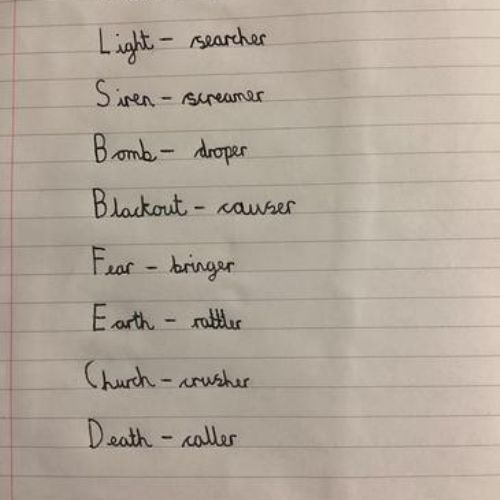 Light - searcher
Siren - screamer
Bomb - droper
Blackout - causer
Fear - bringer
Earth - rattler
Church - crusher
Death - caller